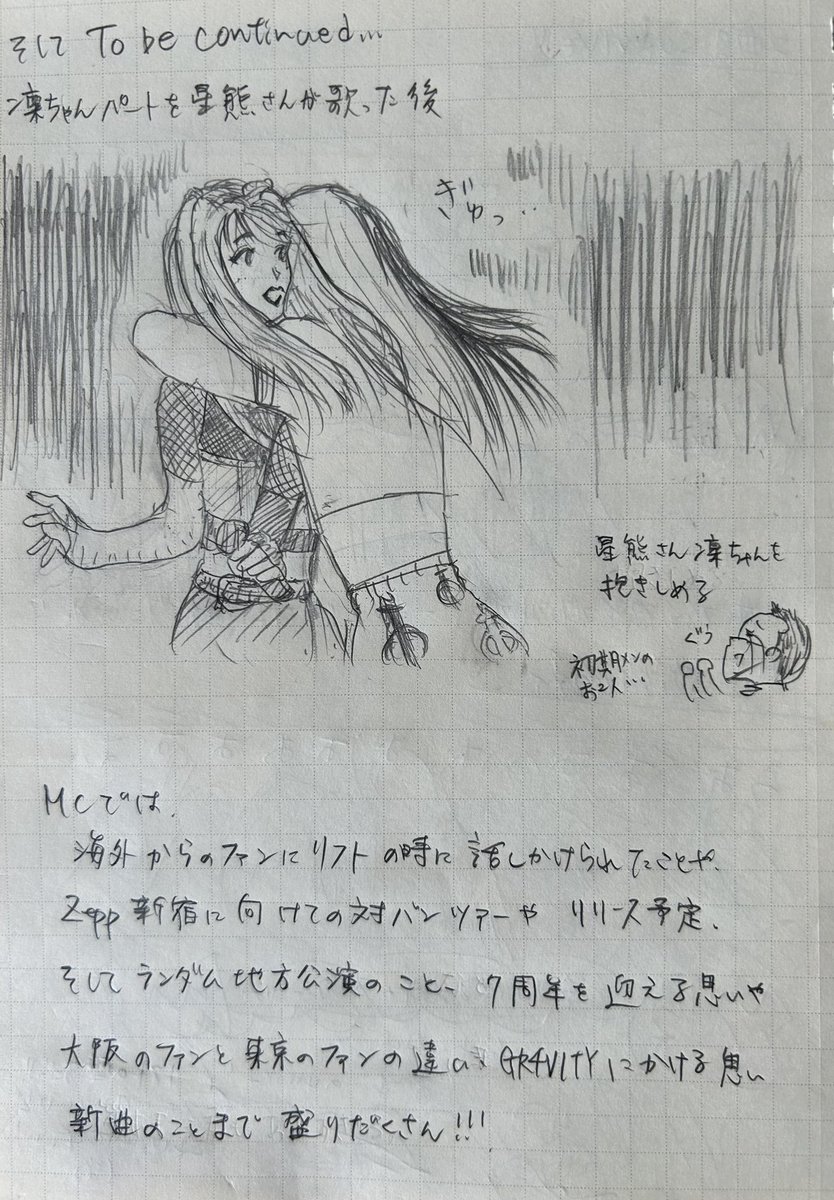 そして To be continued...
凛ちゃんパートを星熊さんが歌った後
ぎゅっ…
星熊さん凛ちゃんを
抱きしめる
ぐぅ
初期メンの
お2人…
MCでは、
海外からのファンにリフトの時に話しかけられたことや、
Zepp新宿に向けての対バンツアーや リリース予定、
そしてランダム地方公演のこと、7周年を迎える思いや
大阪のファンと東京のファンの違い、GR4VITYにかける思い
新曲のことまで盛りだくさん!!!